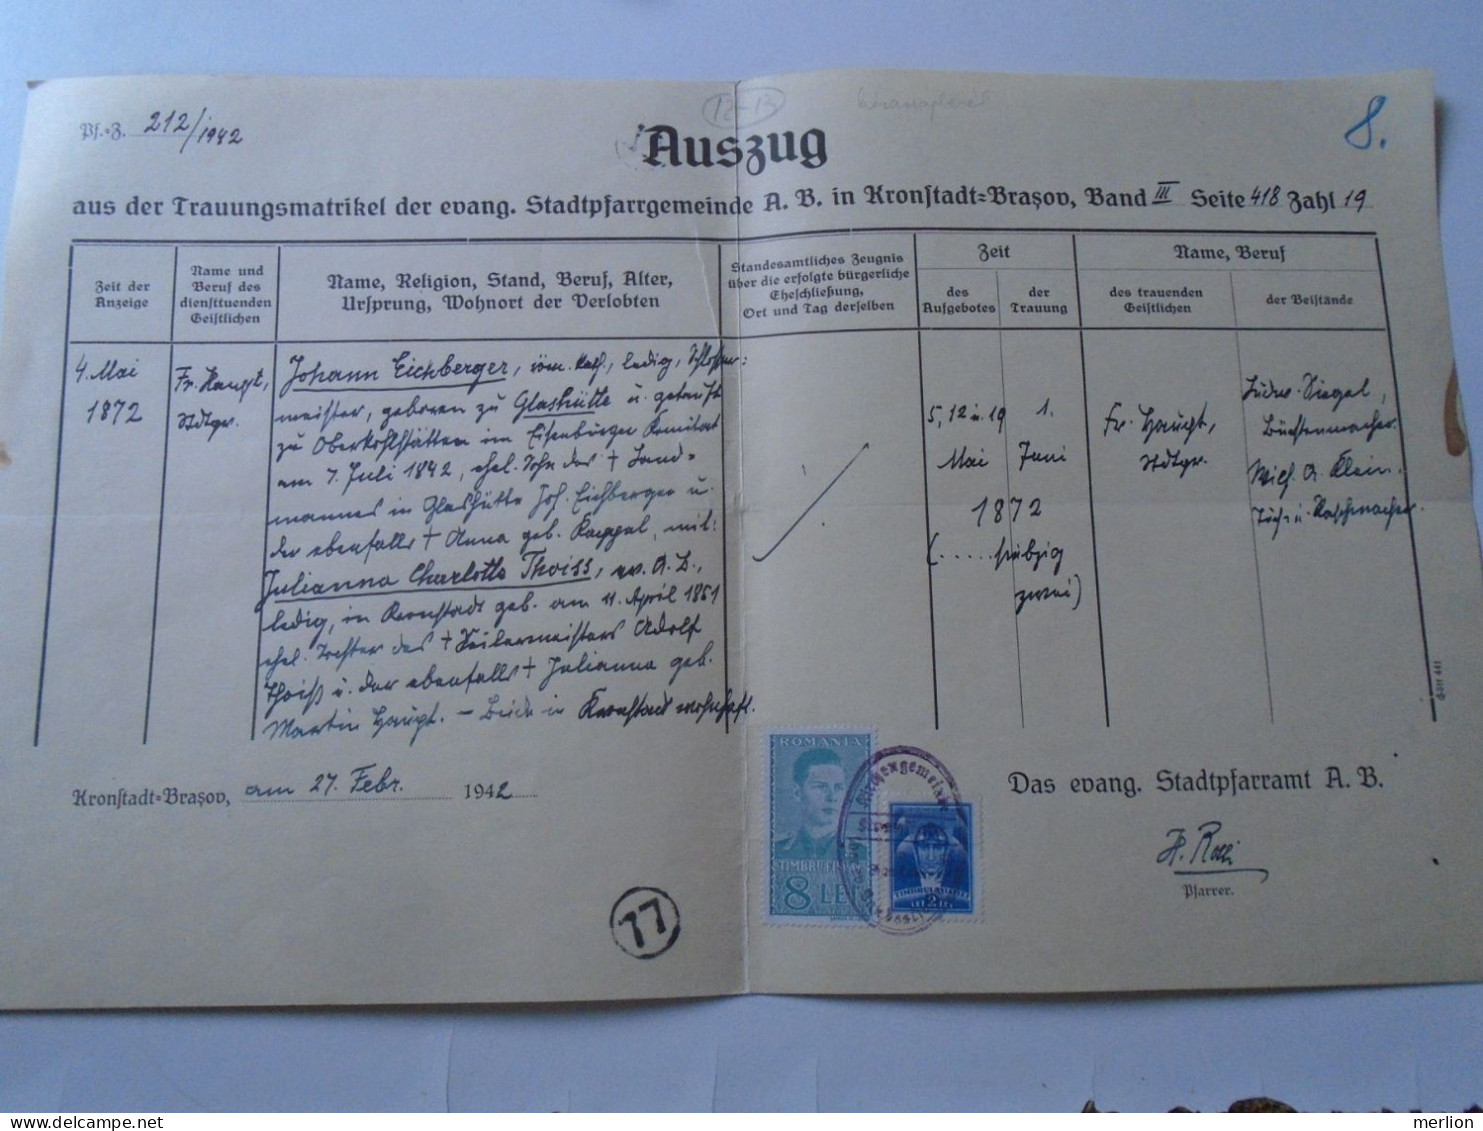 Pf.-Z. 212/1942
12-13
8.
Auszug
aus der Trauungsmatrikel der evang. Stadtpfarrgemeinde A. B. in Kronstadt=Brașov, Band III Seite 418 Zahl 19
Zeit der
Anzeige
Name und
Beruf des
diensttuenden
Geistlichen
Name, Religion, Stand, Beruf, Alter,
Ursprung, Wohnort der Verlobten
Standesamtliches Zeugnis
über die erfolgte bürgerliche
Eheschließung,
Ort und Tag derselben
Zeit
des
Aufgebotes
der
Trauung
Name, Beruf
des trauenden
Geistlichen
der Beistände
4. Mai
1872
Fr. Haupt,
Stdtgr.
Johann Eichberger, röm. kath., ledig, Schlosser:
meister, geboren zu Glashütte u. getauft
zu Oberkohlstätten im Eisenburger Komitat
am 7. Juli 1842, ehel. Sohn des + Land=
mannes in Glashütte Joh. Eichberger u.
der ebenfalls + Anna geb. Kappel, mit:
Julianna Charlotte Thoiss, ev. A. B.,
ledig, in Kronstadt geb. am 11. April 1851
ehel. Tochter des + Seilermeisters Adolf
Thoiß u. der ebenfalls + Julianna geb.
Martin Haupt. — Beide in Kronstadt wohnhaft.
5, 12 u. 19
Mai
1.
Juni
1872
(.....siebzig
zwei)
Fr. Haupt,
Stdtgr.
Ludw. Siegel,
Büchsenmacher.
Mich. A. Klein,
Tisch u.
Gött 441
Kronstadt=Brașov, am 27. Febr. 1942
ROMANIA
TIMBRU FISCAL
8 LEI
Kirchengemeinde
TIMBRUL AVIAȚIEI
LEI 2 LEI
77
Das evang. Stadtpfarramt A. B.
Pfarrer.
merlion